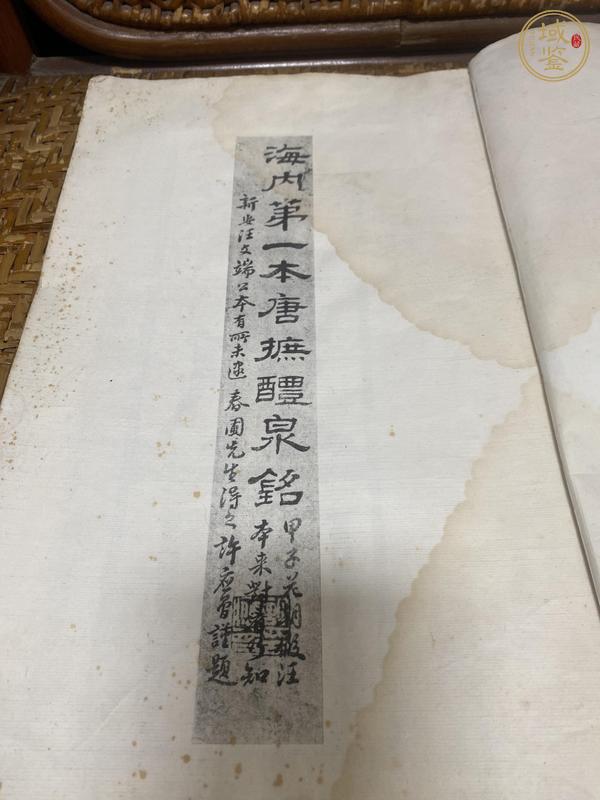 海内第一本唐摭醴泉銘
甲子花朝假汪
本来對看始知
新安汪文端公本有所未逮 春圃先生得之 許應骙謹題
域鉴